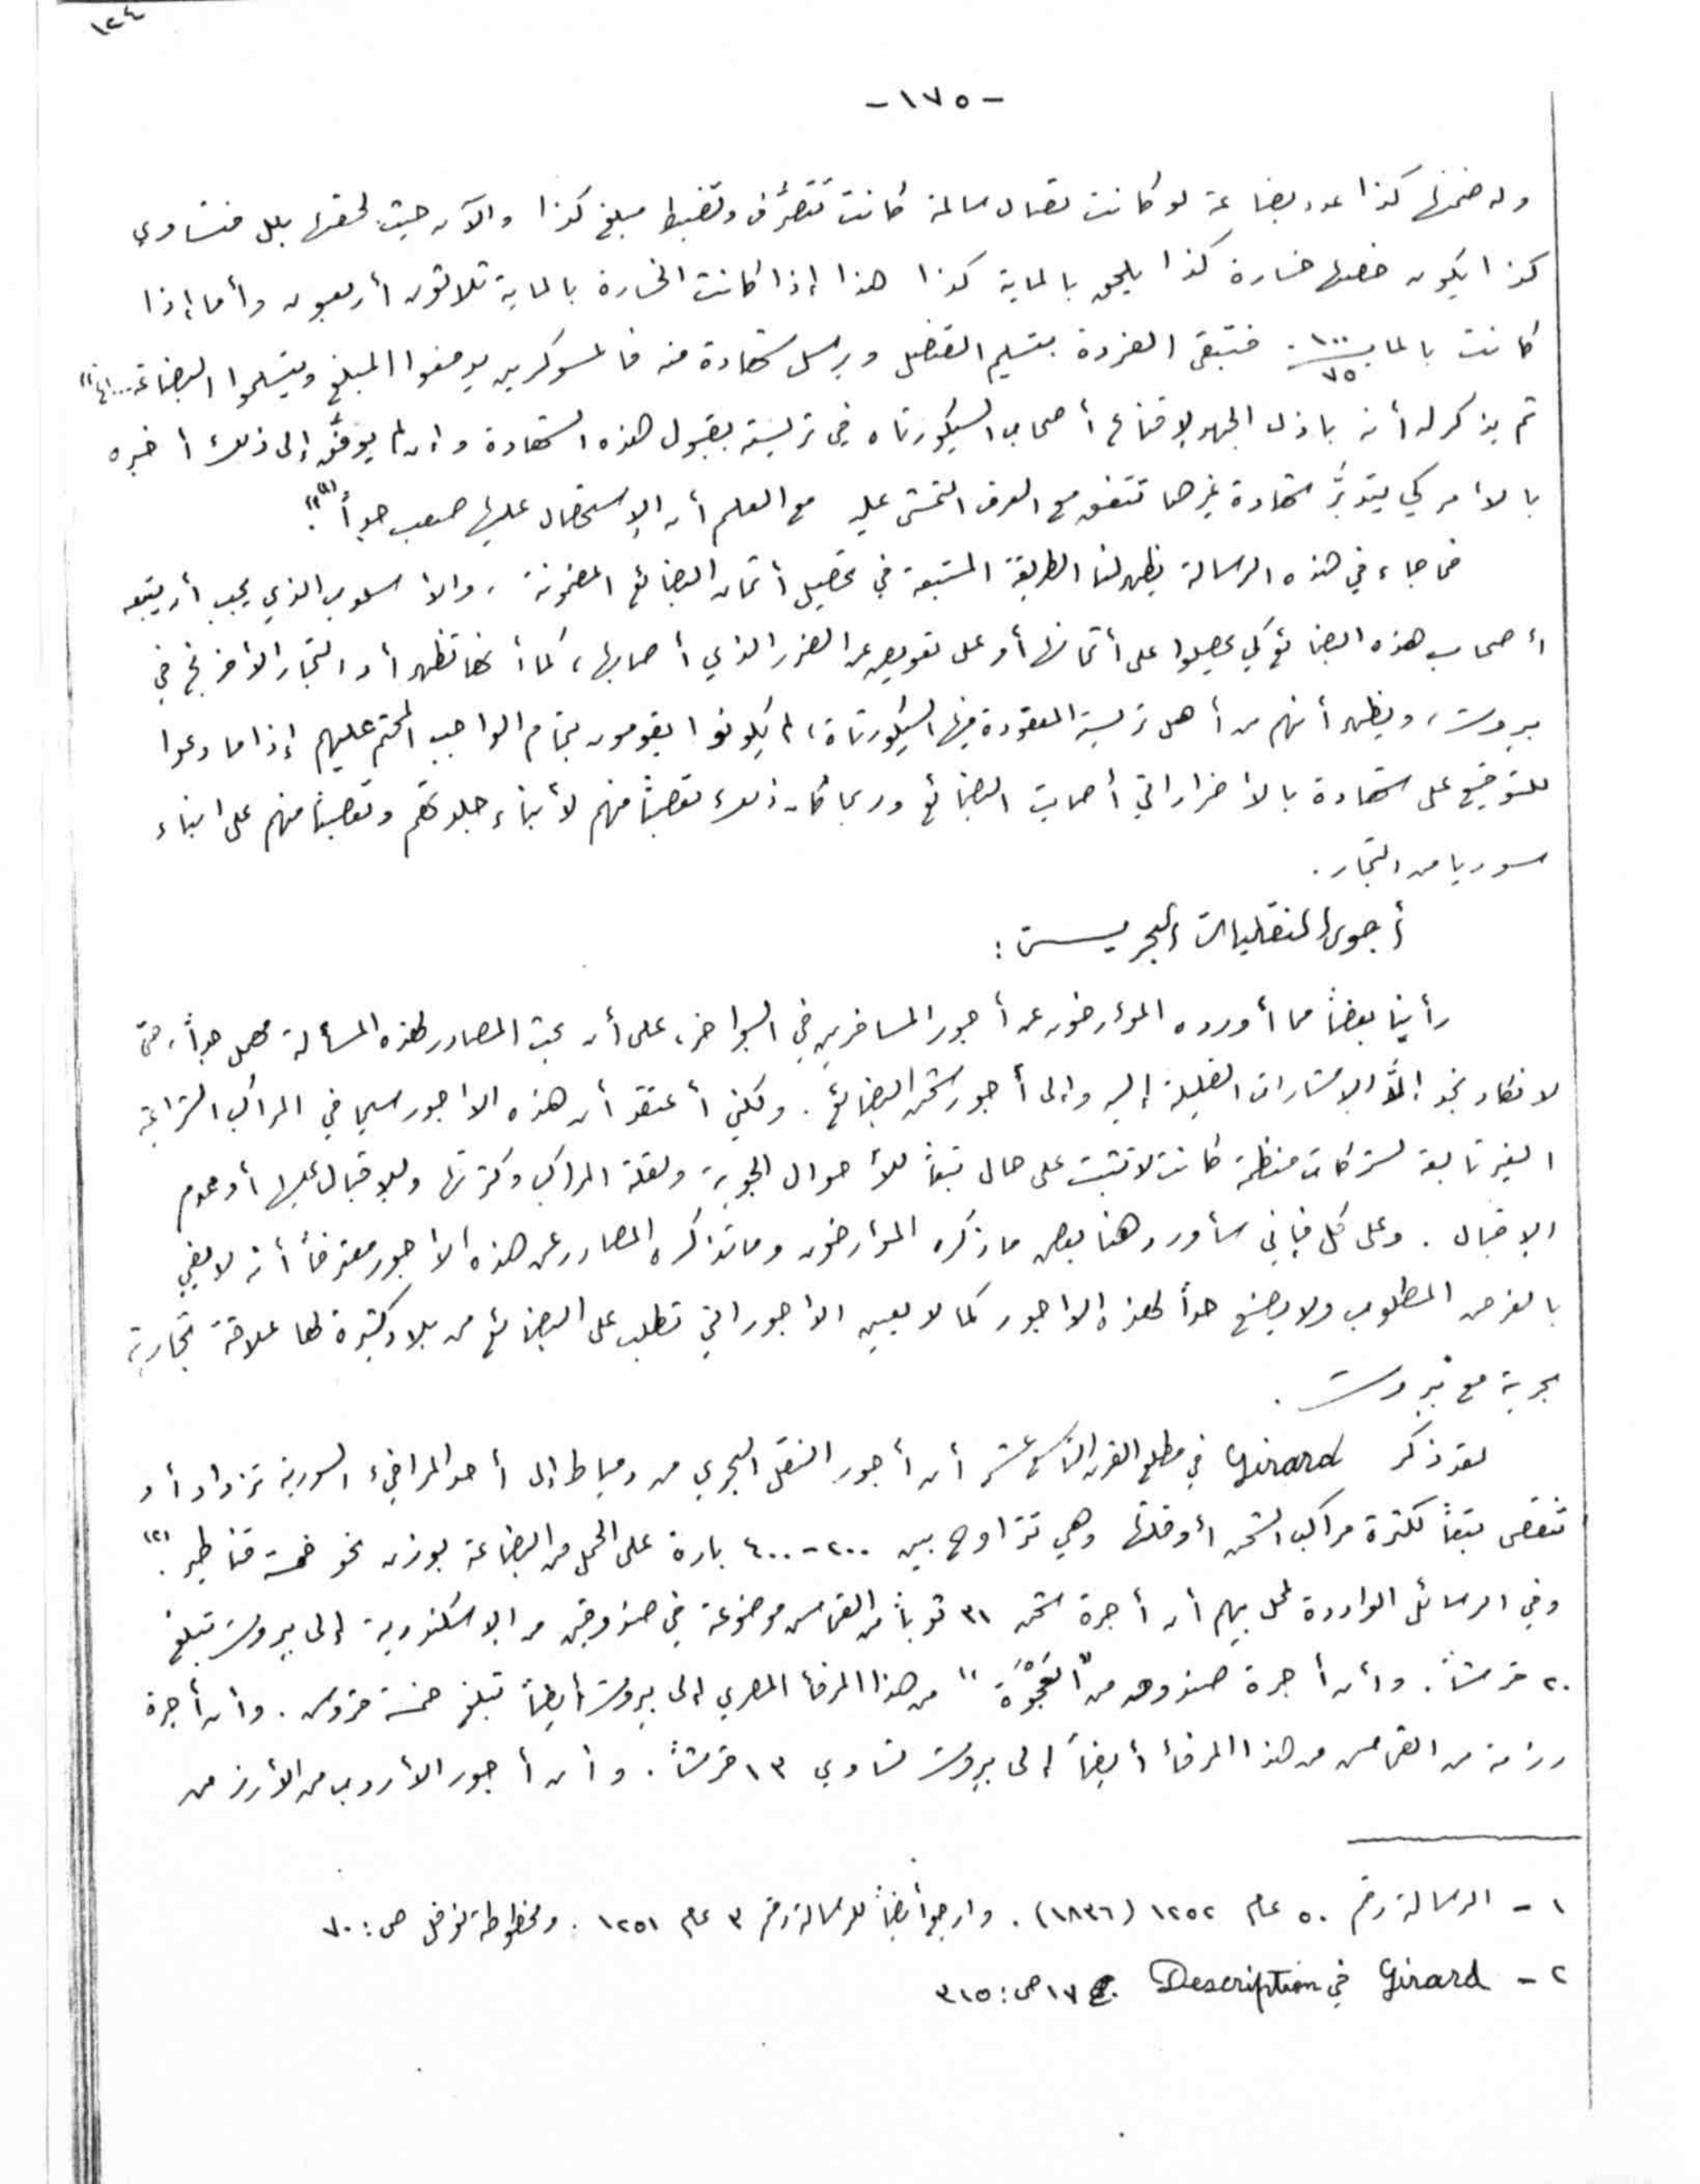 ١٢٤
-١٧٥-
وله ضمنها كذا عدد بضاعة لو كانت تصل سالمة كانت تتصرف وتضبط مبلغ كذا والآن حيث لحقها بلل فتساوي
كذا يكون خصها خسارة كذا يلحق بالماية كذا هذا إذا كانت الخسارة بالماية ثلاثون أربعون وأما إذا
كانت بالماية ١٠٠ ٧٥ فتبقى الفردة بتسليم القنصل ويرسل شهادة منه فالمسوكرين يدفعوا المبلغ ويتسلموا البضاعة...الخ"
ثم يذكر له أنه باذل الجهد لإقناع أصحاب السيكورتاه في تريسته بقبول هذه الشهادة وان لم يوفَّق إلى ذلك أخبره
بالأمر كي يتدبَّر شهادة غيرها تتفق مع العرف المتمشى عليه مع العلم أن الإستحصال عليها صعب جداً"(١).
فما جاء في هذه الرسالة يظهر لنا الطريقة المتبعة في تحصيل أثمان البضائع المضمونة، والأسلوب الذي يجب أن يتبعه
أصحاب هذه البضائع كي يحصلوا على أثمانها أو على تعويض عن الضرر الذي أصابها، كما أنها تظهر أن التجار الأفرنج في
بيروت، ويظهر أنهم من أهل تريستة المعقودة فيها السيكورتاة، لم يكونوا يقومون بتمام الواجب المحتم عليهم إذا ما دعوا
للتوقيع على شهادة بالأضرار التي أصابت البضائع وربما كان ذلك تعصباً منهم لأبناء جلدتهم وتعصباً منهم على ابناء
سوريا من التجار.
أجور النقليات البحريـــة :
رأينا بعضاً مما أورده المؤرخون عن أجور المسافرين في البواخر، على أن بحث المصادر لهذه المسألة مهمل جداً، حتى
لا نكاد نجد إلاَّ الإشارات القليلة إليه وإلى أجور شحن البضائع. ولكني أعتقد أن هذه الاجور سيما في المراكب الشراعية
الغير تابعة لشركات منظمة كانت لا تثبت على حال تبعاً للأحوال الجوية ولقلة المراكب وكثرتها وللإقبال عليها أو عدم
الإقبال. وعلى كل فإني سأورد هنا بعض ما ذكره المؤرخون وما تذكره المصادر عن هذه الأجور معترفاً أنه لا يفي
بالغرض المطلوب ولا يضع حداً لهذه الاجور كما لا يعين الاجور التي تطلب على البضائع من بلاد كثيرة لها علاقة تجارية
بحرية مع بيروت.
لقد ذكر Girard في مطلع القرن التاسع عشر أن أجور النقل البحري من دمياط إلى أحد المرافيء السورية تزداد أو
تنقص تبعاً لكثرة مراكب الشحن أو قلتها وهي تتراوح بين ٢٠٠-٤٠٠ بارة على الحمل من البضاعة بوزن نحو خمسة قناطير(٢).
وفي الرسائل الواردة لمحل بيهم أن أجرة شحن ٣١ ثوباً من القماش موضوعة في صندوقين من الإسكندرية إلى بيروت تبلغ
٢٠ قرشاً. وأن أجرة صندوق من "العَجْوَة" من هذا المرفأ المصري إلى بيروت أيضاً تبلغ خمسة قروش. وأن أجرة
رزمة من القماش من هذا المرفأ أيضاً إلى بيروت تساوي ١٣ قرشاً. وأن أجور الأردب من الأرز من
١ - الرسالة رقم ٥٠ عام ١٢٥٢ (١٨٣٦). وارجع أيضاً للرسالة رقم ٣ عام ١٢٥١. ومخطوطة نوفل ص: ٧٠
٢ - Girard في Description ج ١٧ ص: ٣١٥